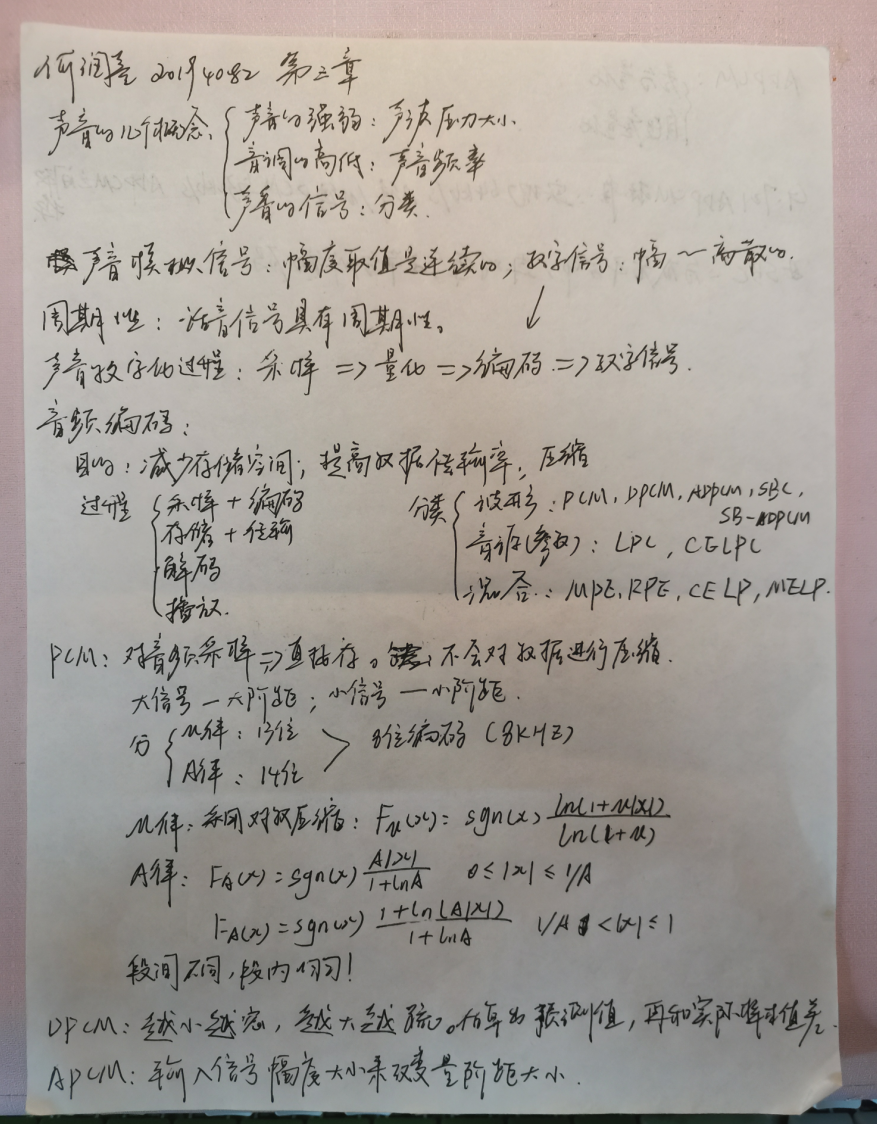 何润 20194082 第三章
声音的几个概念 { 声音的强弱：声波压力大小
音调的高低：声音频率
声音的信号：分类.
声音模拟信号：幅度取值是连续的；数字信号：幅～离散的.
周期性：话音信号具有周期性。
声音数字化过程：采样 => 量化 => 编码 => 数字信号.
音频编码：
目的：减少存储空间；提高数据传输率；压缩
过程 { 采样 + 编码
存储 + 传输
解码
播放.
分类 { 波形：PCM, DPCM, ADPCM, SBC,
SB-ADPCM
音源(参数)：LPC, CELPC
混合：MPE, RPE, CELP, MELP.
PCM：对音频采样 => 直接存。不会对数据进行压缩.
大信号 — 大阶距；小信号 — 小阶距.
分 { μ律：13位
A律：14位
> 8位编码 (8KHZ)
μ律：采用对数压缩：Fμ(x) = sgn(x) ln(1+μ|x|) / ln(1+μ)
A律：FA(x) = sgn(x) A|x| / 1+lnA 0 ≤ |x| ≤ 1/A
FA(x) = sgn(x) 1+ln(A|x|) / 1+lnA 1/A < |x| ≤ 1
段间不同，段内均匀！
DPCM：越小越密，越大越疏。估算出预测值，再和实际样本值差.
APCM：输入信号幅度大小来改变量阶距大小.